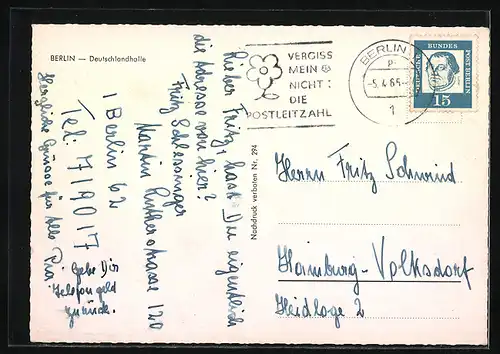 BERLIN — Deutschlandhalle
Lieber Fritz, hast Du eigentlich
die Adresse von hier?
Fritz Schlessinger
Martin Lutherstrasse 120
1 Berlin 62
Tel: 719017
Herzliche Grüsse für Alle
Gebe Dir
Telefongeld
zurück.
Nachdruck verboten Nr. 294
VERGISS
MEIN
NICHT:
DIE
POSTLEITZAHL
BERLIN
-5.4.65-
1
DEUTSCHE BUNDES POST BERLIN
15
Herrn Fritz Schwind
Hamburg-Volksdorf
Heidloge 2